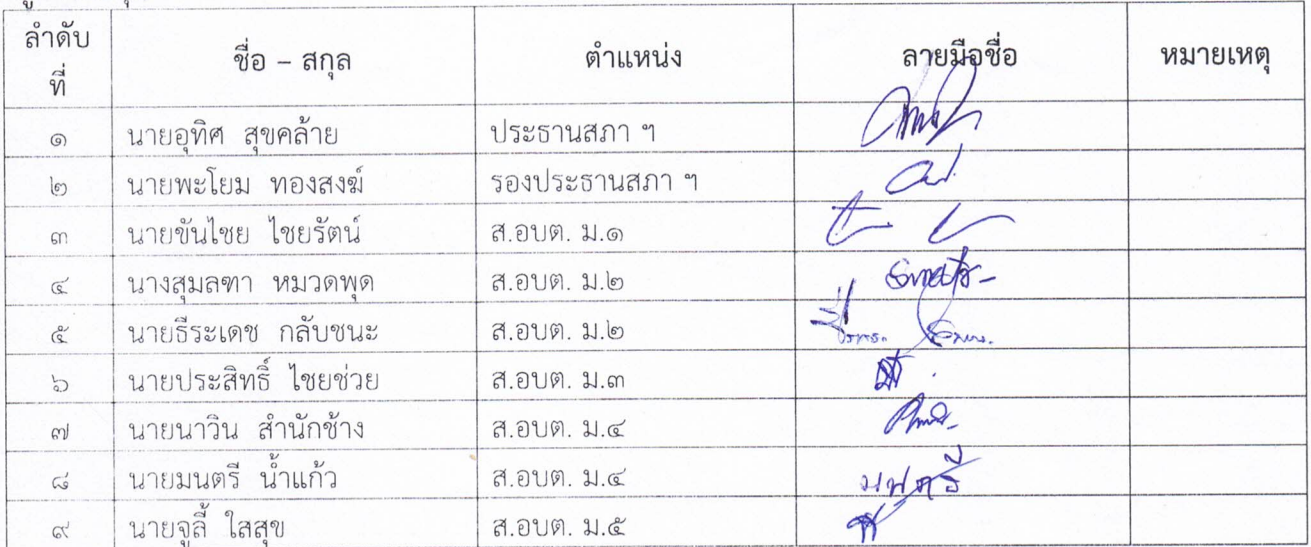 ลำดับ
ที่
ชื่อ – สกุล
ตำแหน่ง
ลายมือชื่อ
หมายเหตุ
๑ นายอุทิศ สุขคล้าย ประธานสภา ฯ
๒ นายพะโยม ทองสงฆ์ รองประธานสภา ฯ
๓ นายขันไชย ไชยรัตน์ ส.อบต. ม.๑
๔ นางสุมลฑา หมวดพุด ส.อบต. ม.๒
๕ นายธีระเดช กลับชนะ ส.อบต. ม.๒
๖ นายประสิทธิ์ ไชยช่วย ส.อบต. ม.๓
๗ นายนาวิน สำนักช้าง ส.อบต. ม.๔
๘ นายมนตรี น้ำแก้ว ส.อบต. ม.๔ มนตรี
๙ นายจูลี้ ใสสุข ส.อบต. ม.๕